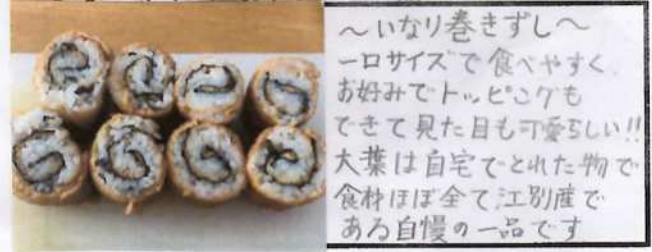 ～いなり巻きずし～
一口サイズで食べやすく
お好みでトッピングも
できて見た目も可愛らしい!!
大葉は自宅でとれた物で
食材ほぼ全て江別産で
ある自慢の一品です